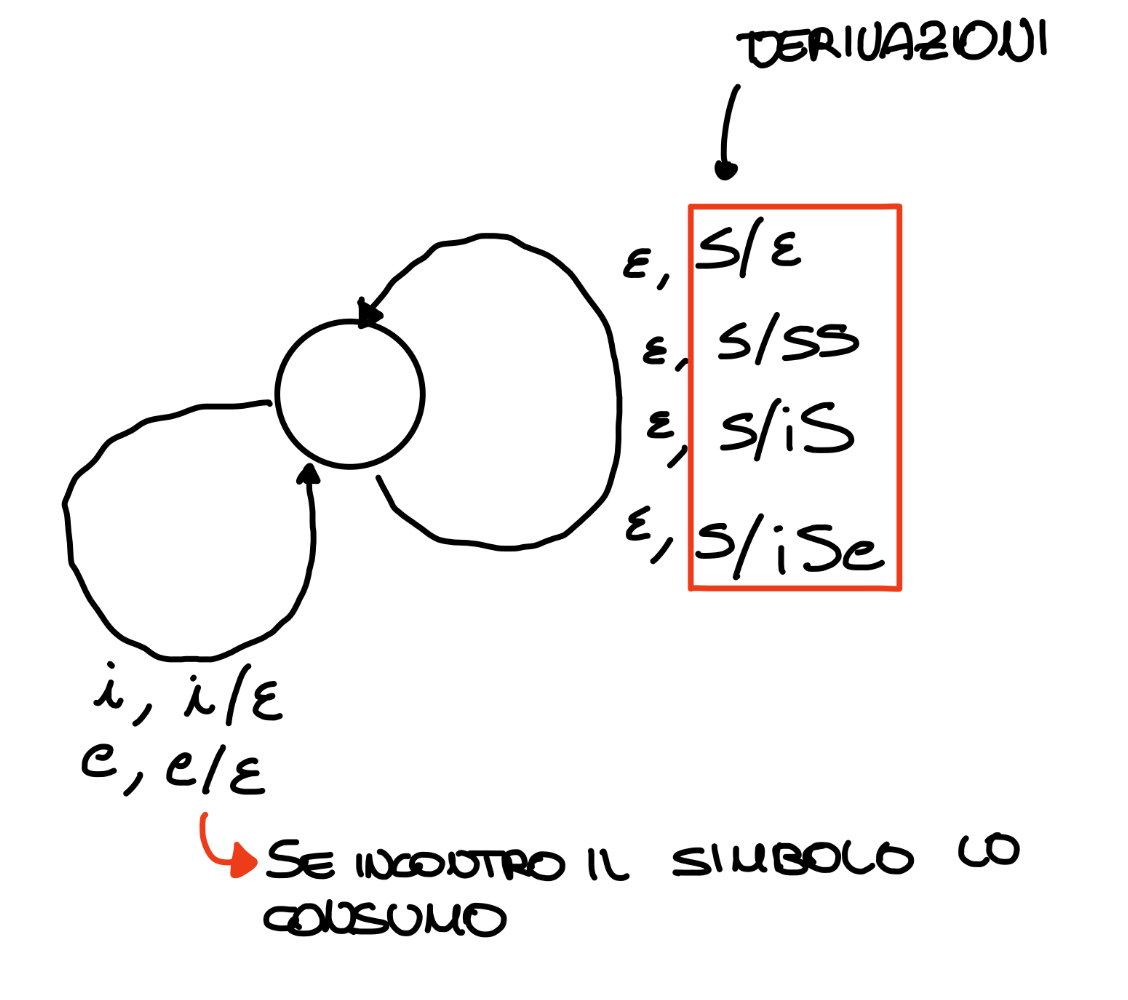 DERIVAZIONI
ε, S/ε
ε, S/SS
ε, S/iS
ε, S/iSe
i, i/ε
e, e/ε
SE INCONTRO IL SIMBOLO LO
CONSUMO